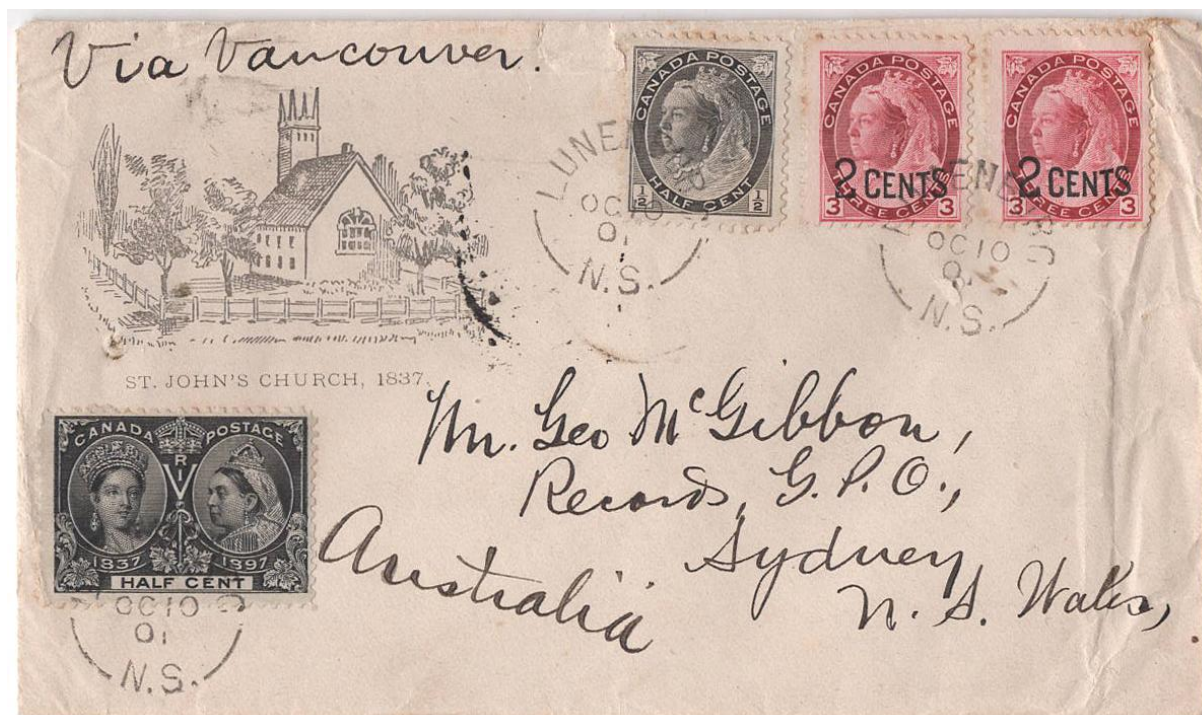 Via Vancouver.
CANADA POSTAGE
½ HALF CENT ½
CANADA POSTAGE
2 CENTS
3 THREE CENTS 3
CANADA POSTAGE
2 CENTS
3 THREE CENTS 3
OC 10
01
N.S.
OC 10
N.S.
ST. JOHN'S CHURCH, 1837.
CANADA POSTAGE
V R I
1837 1897
HALF CENT
OC 10
01
N.S.
Mr. Geo McGibbon,
Records, G.P.O.,
Sydney
N. S. Wales,
Australia